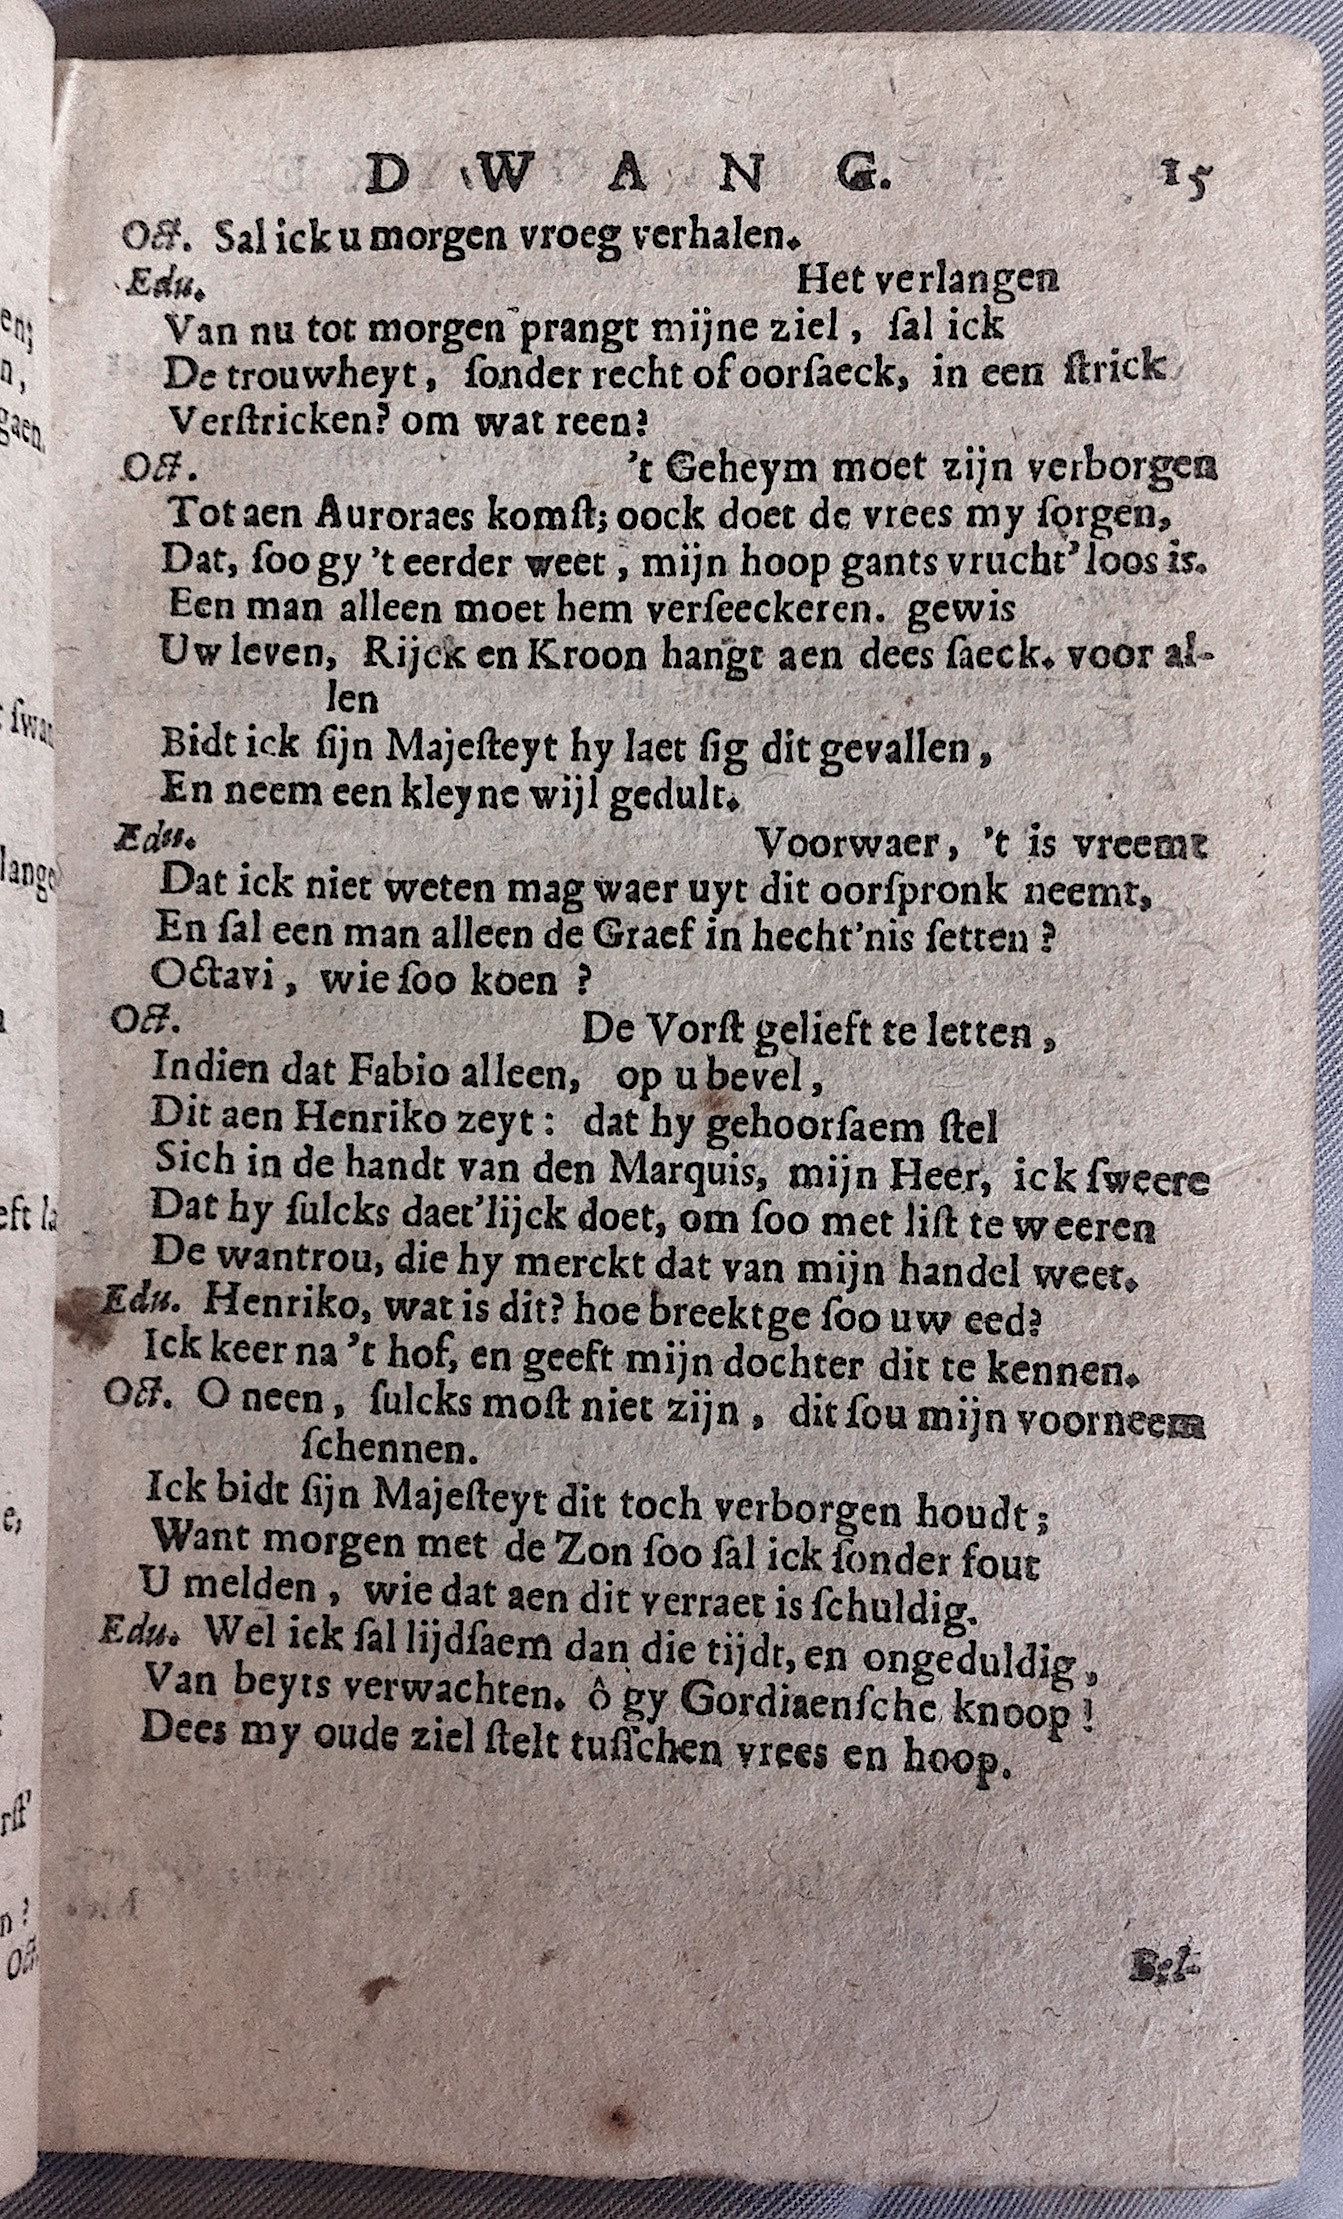 DWANG. 15
Oct. Sal ick u morgen vroeg verhalen.
Edu. Het verlangen
Van nu tot morgen prangt mijne ziel, ſal ick
De trouwheyt, ſonder recht of oorſaeck, in een ſtrick
Verſtricken? om wat reen?
Oct. 't Geheym moet zijn verborgen
Tot aen Auroraes komſt; oock doet de vrees my ſorgen,
Dat, ſoo gy 't eerder weet, mijn hoop gants vrucht'loos is.
Een man alleen moet hem verſeeckeren. gewis
Uw leven, Rijck en Kroon hangt aen dees ſaeck. voor al-
len
Bidt ick ſijn Majeſteyt hy laet ſig dit gevallen,
En neem een kleyne wijl gedult.
Edu. Voorwaer, 't is vreemt
Dat ick niet weten mag waer uyt dit oorſpronk neemt,
En ſal een man alleen de Graef in hecht'nis ſetten?
Octavi, wie ſoo koen?
Oct. De Vorſt gelieft te letten,
Indien dat Fabio alleen, op u bevel,
Dit aen Henriko zeyt: dat hy gehoorſaem ſtel
Sich in de handt van den Marquis, mijn Heer, ick ſweere
Dat hy ſulcks daet'lijck doet, om ſoo met liſt te weeren
De wantrou, die hy merckt dat van mijn handel weet.
Edu. Henriko, wat is dit? hoe breekt ge ſoo uw eed?
Ick keer na 't hof, en geeft mijn dochter dit te kennen.
Oct. O neen, ſulcks moſt niet zijn, dit ſou mijn voorneem
ſchennen.
Ick bidt ſijn Majeſteyt dit toch verborgen houdt;
Want morgen met de Zon ſoo ſal ick ſonder fout
U melden, wie dat aen dit verraet is ſchuldig.
Edu. Wel ick ſal lijdſaem dan die tijdt, en ongeduldig,
Van beyts verwachten. ô gy Gordiaenſche knoop!
Dees my oude ziel ſtelt tuſſchen vrees en hoop.
Bel-